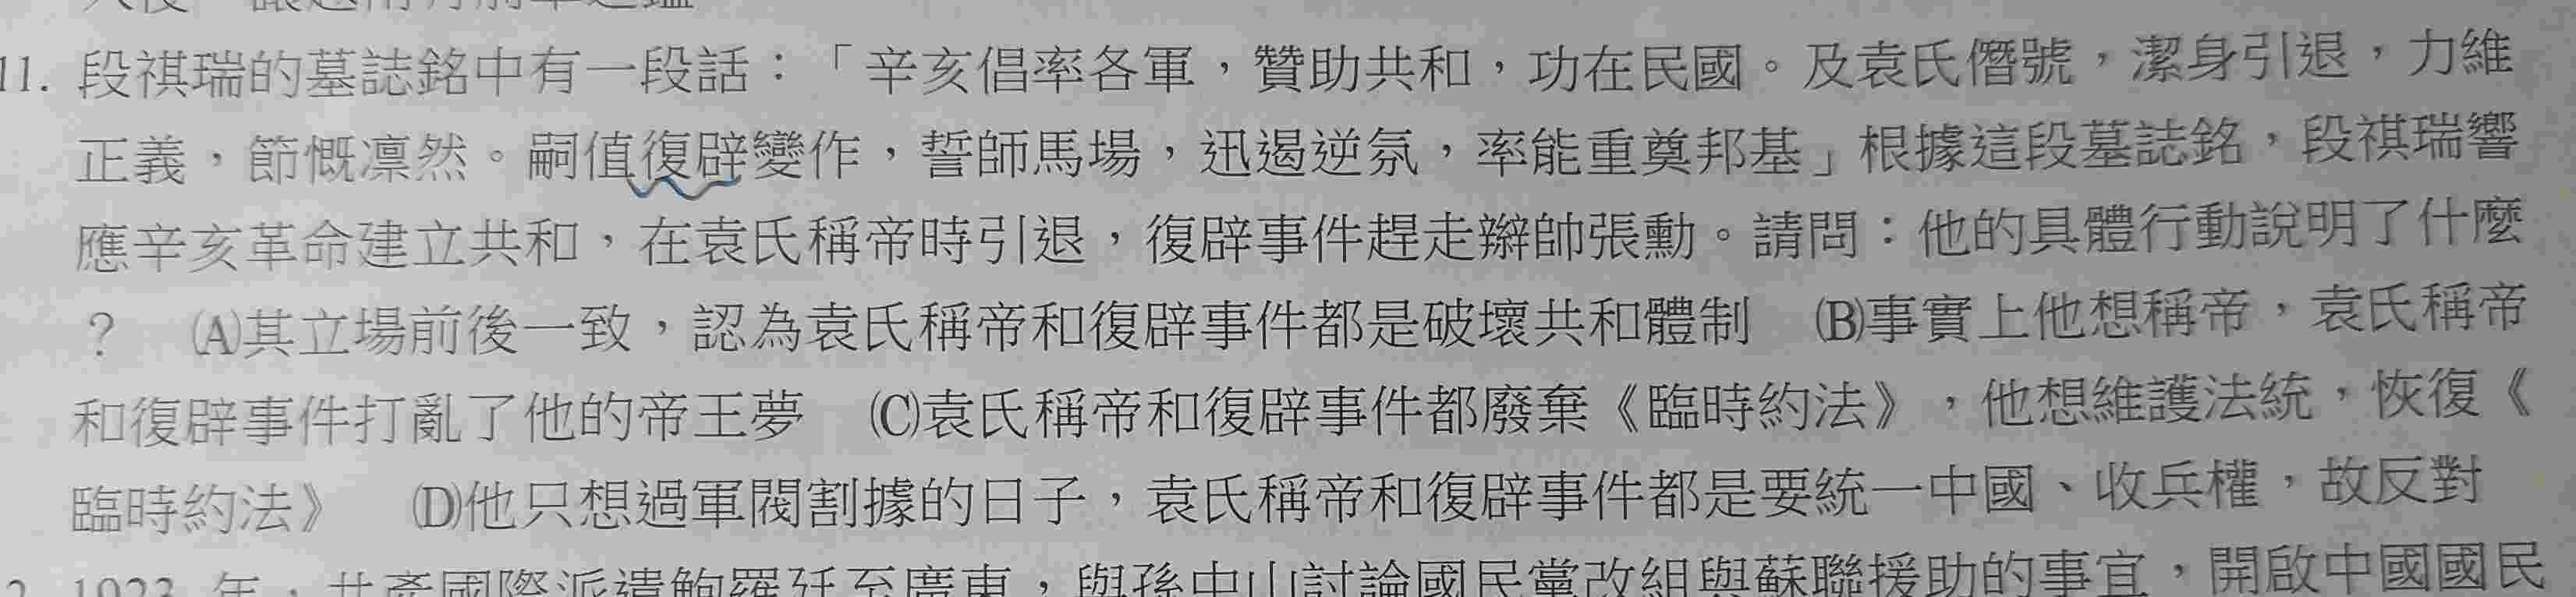 11. 段祺瑞的墓誌銘中有一段話：「辛亥倡率各軍，贊助共和，功在民國。及袁氏僭號，潔身引退，力維
正義，節慨凜然。嗣值復辟變作，誓師馬場，迅遏逆氛，率能重奠邦基」根據這段墓誌銘，段祺瑞響
應辛亥革命建立共和，在袁氏稱帝時引退，復辟事件趕走辮帥張勳。請問：他的具體行動說明了什麼
？　(A)其立場前後一致，認為袁氏稱帝和復辟事件都是破壞共和體制　(B)事實上他想稱帝，袁氏稱帝
和復辟事件打亂了他的帝王夢　(C)袁氏稱帝和復辟事件都廢棄《臨時約法》，他想維護法統，恢復《
臨時約法》　(D)他只想過軍閥割據的日子，袁氏稱帝和復辟事件都是要統一中國、收兵權，故反對
2. 1923 年，共產國際派遣鮑羅廷至廣東，與孫中山討論國民黨改組與蘇聯援助的事宜，開啟中國國民